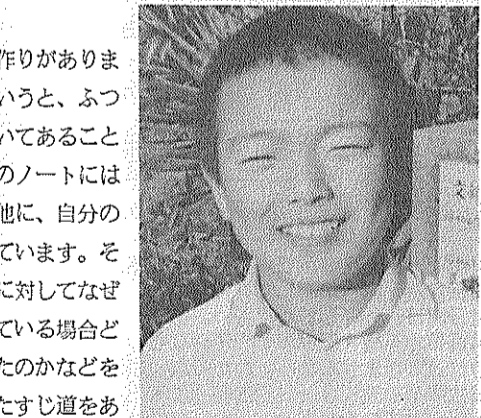 作りがありま
いうと、ふつ
いてあること
のノートには
他に、自分の
ています。そ
に対してなぜ
ている場合ど
たのかなどを
たすじ道をあ